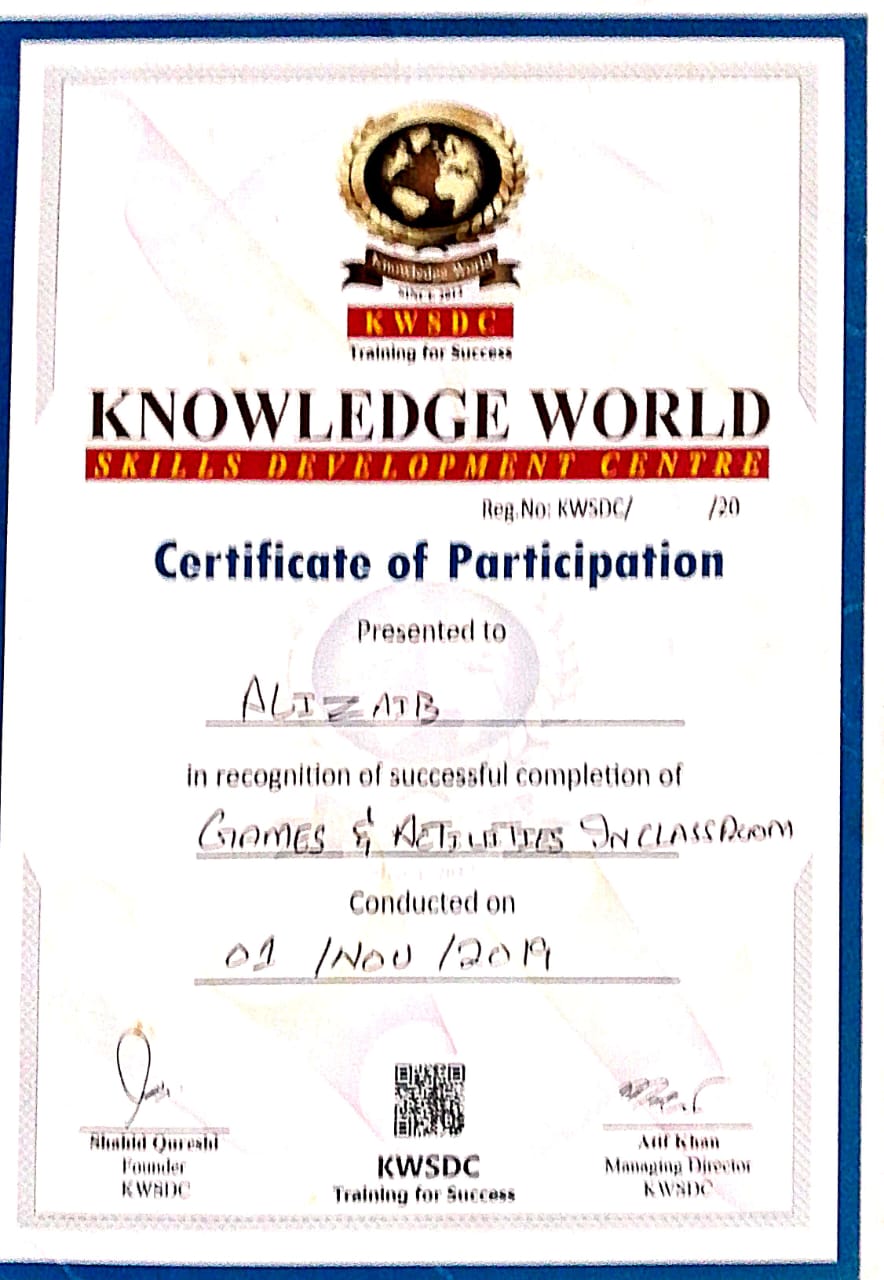 Knowledge World
KWSDC
Training for Success
KNOWLEDGE WORLD
SKILLS DEVELOPMENT CENTRE
Reg.No: KWSDC/ /20
Certificate of Participation
Presented to
ALIZAIB
in recognition of successful completion of
GAMES & ACTIVITIES IN CLASSROOM
Conducted on
01 /NOV /2019
Shahid Qureshi
Founder
KWSDC
KWSDC
Training for Success
Atif Khan
Managing Director
KWSDC